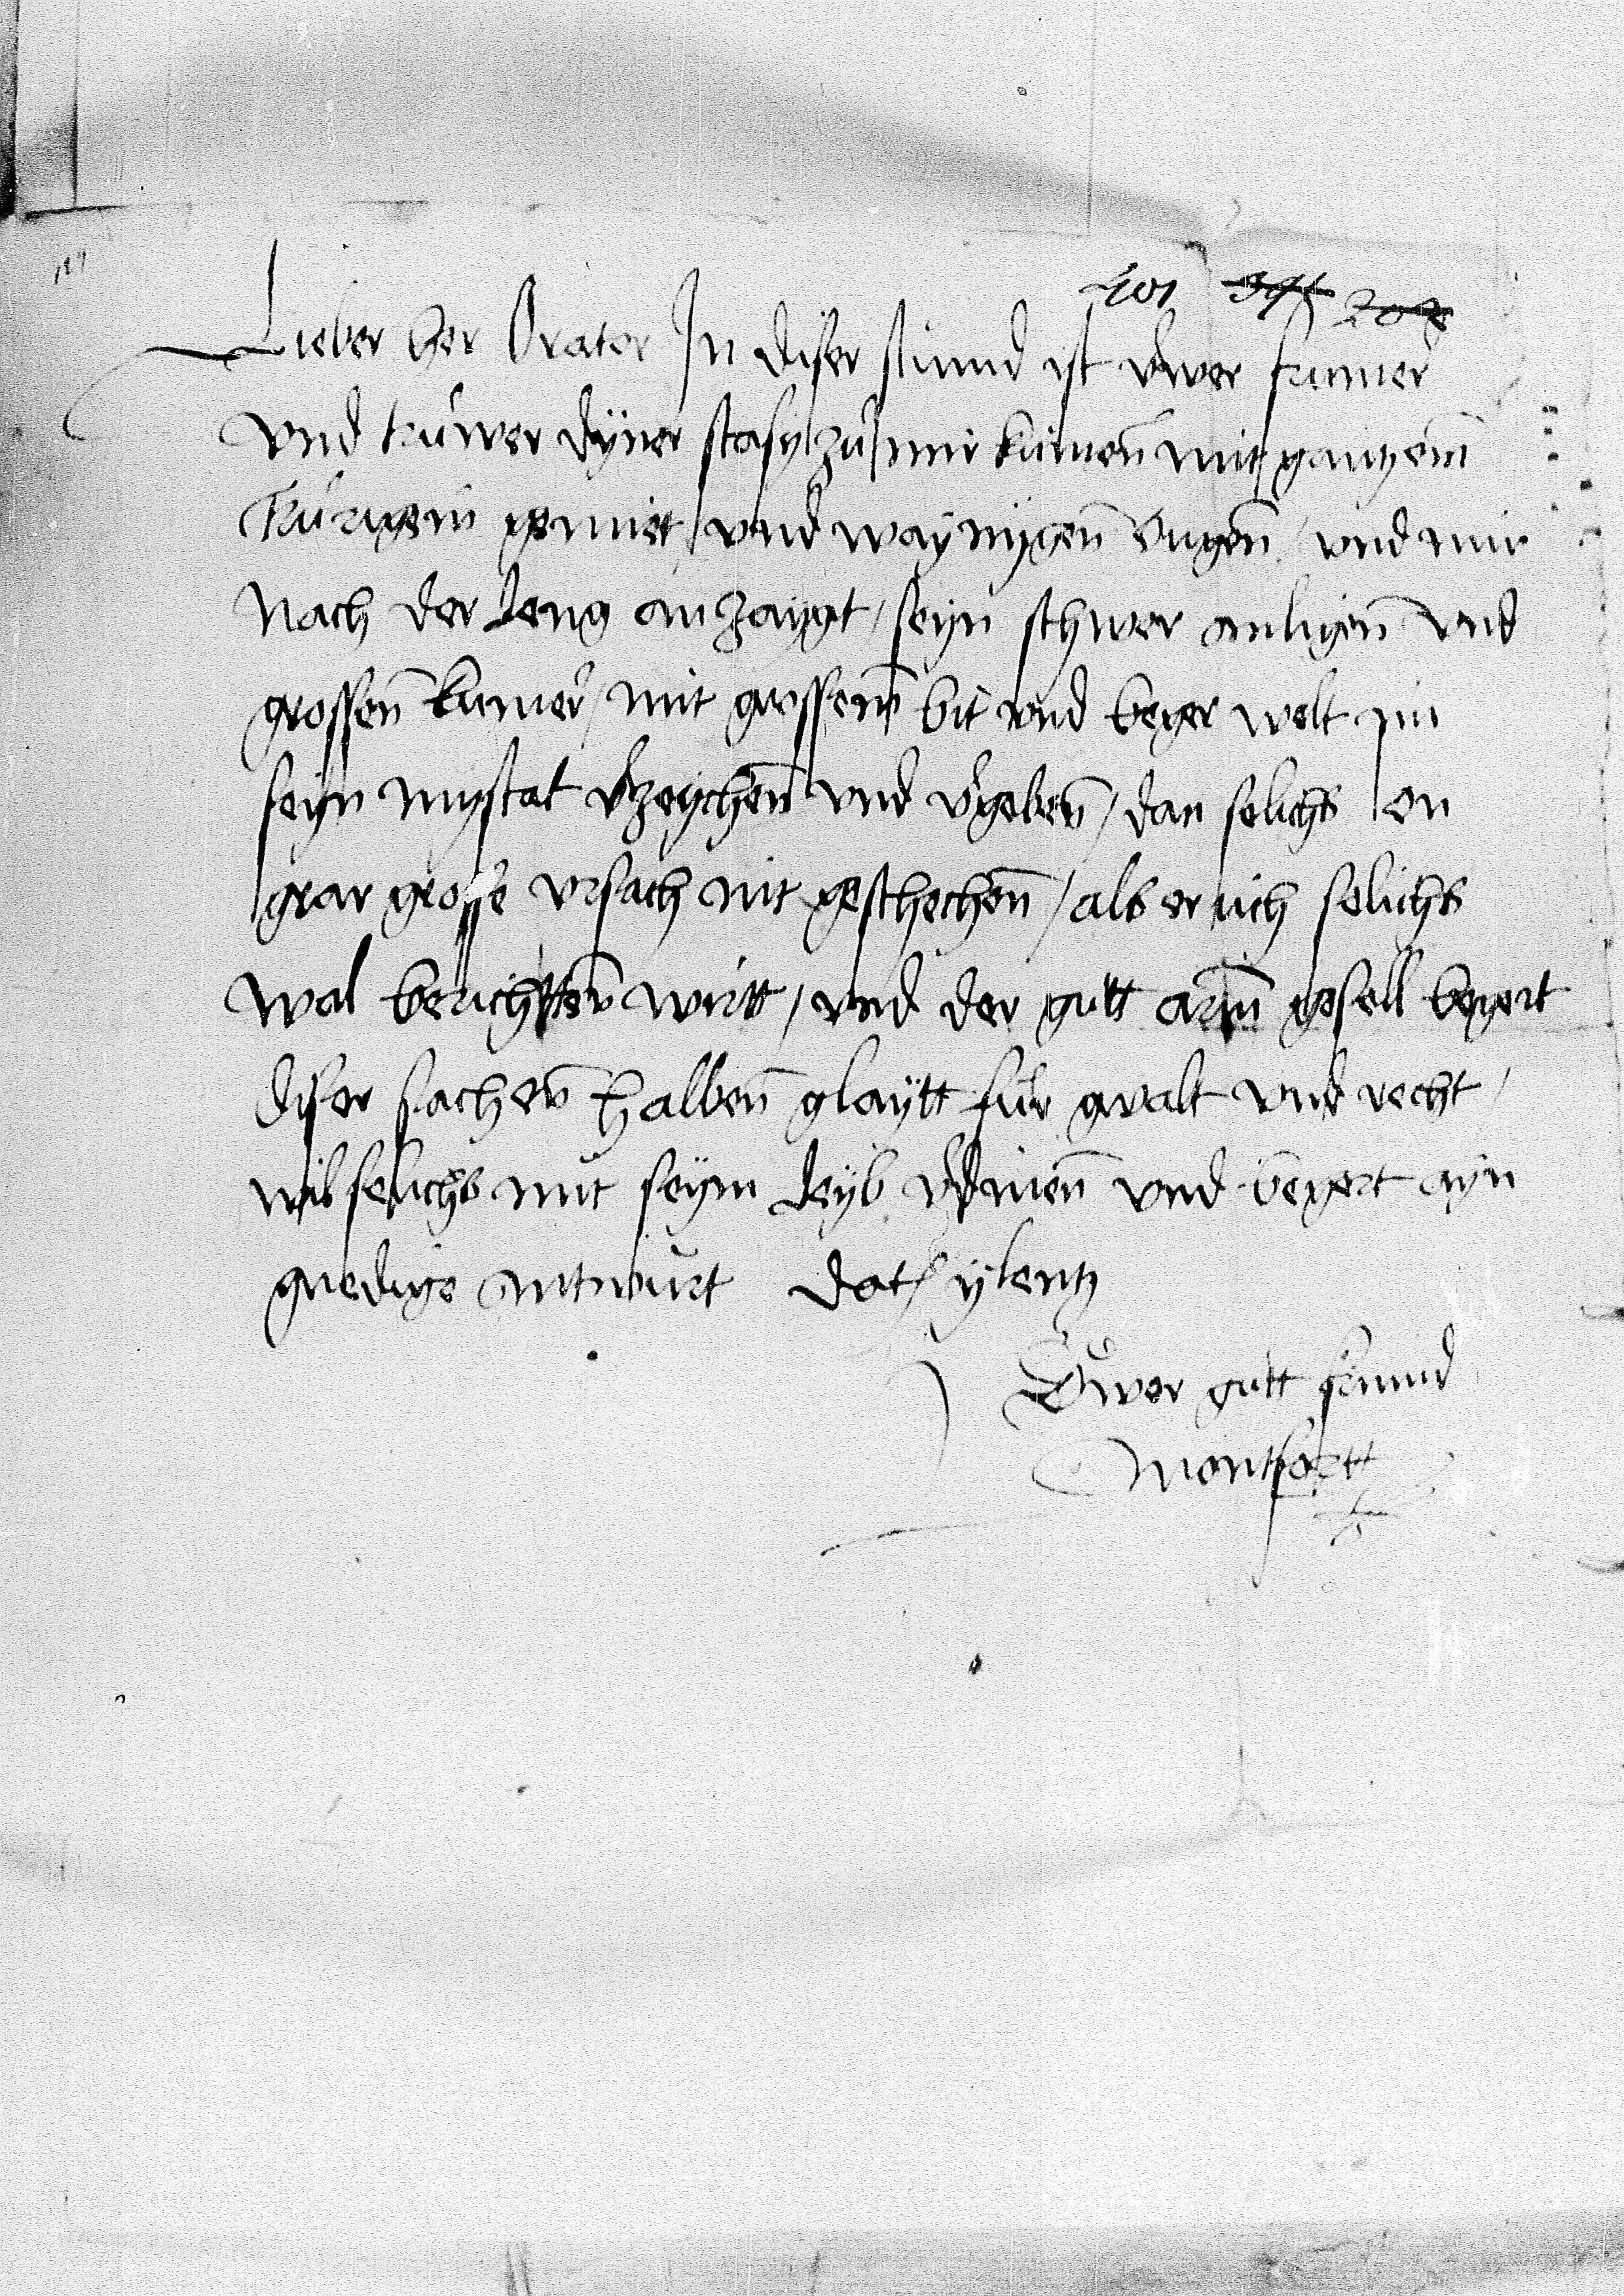 201 391 202
Lieber her Orator In diser stund ist vwer frumer
vnd trúwer dyner stasy zů mir kumen mit gantzem
trúrigem gemiet vnd waynigen ougen / vnd mir
Nach der leng anzaygt / seyn schwer anligen vnd
grossen kumer / mit grossem bit vnd beger welt im
seyn mystat v̉zeychen vnd v̉geben / dan selichs on
grar grosse vrsach nit geschechen / als er uch selichs
wal berichtten wirtt / vnd der gutt arm gesell begert
diser sachen halben glaytt fúr gwalt vnd recht /
wil selichs mit seym leyb v̉dinen vnd begert ayn
gnedige antwurt dat ylentz
Eẃer gutt frund
Montfortt